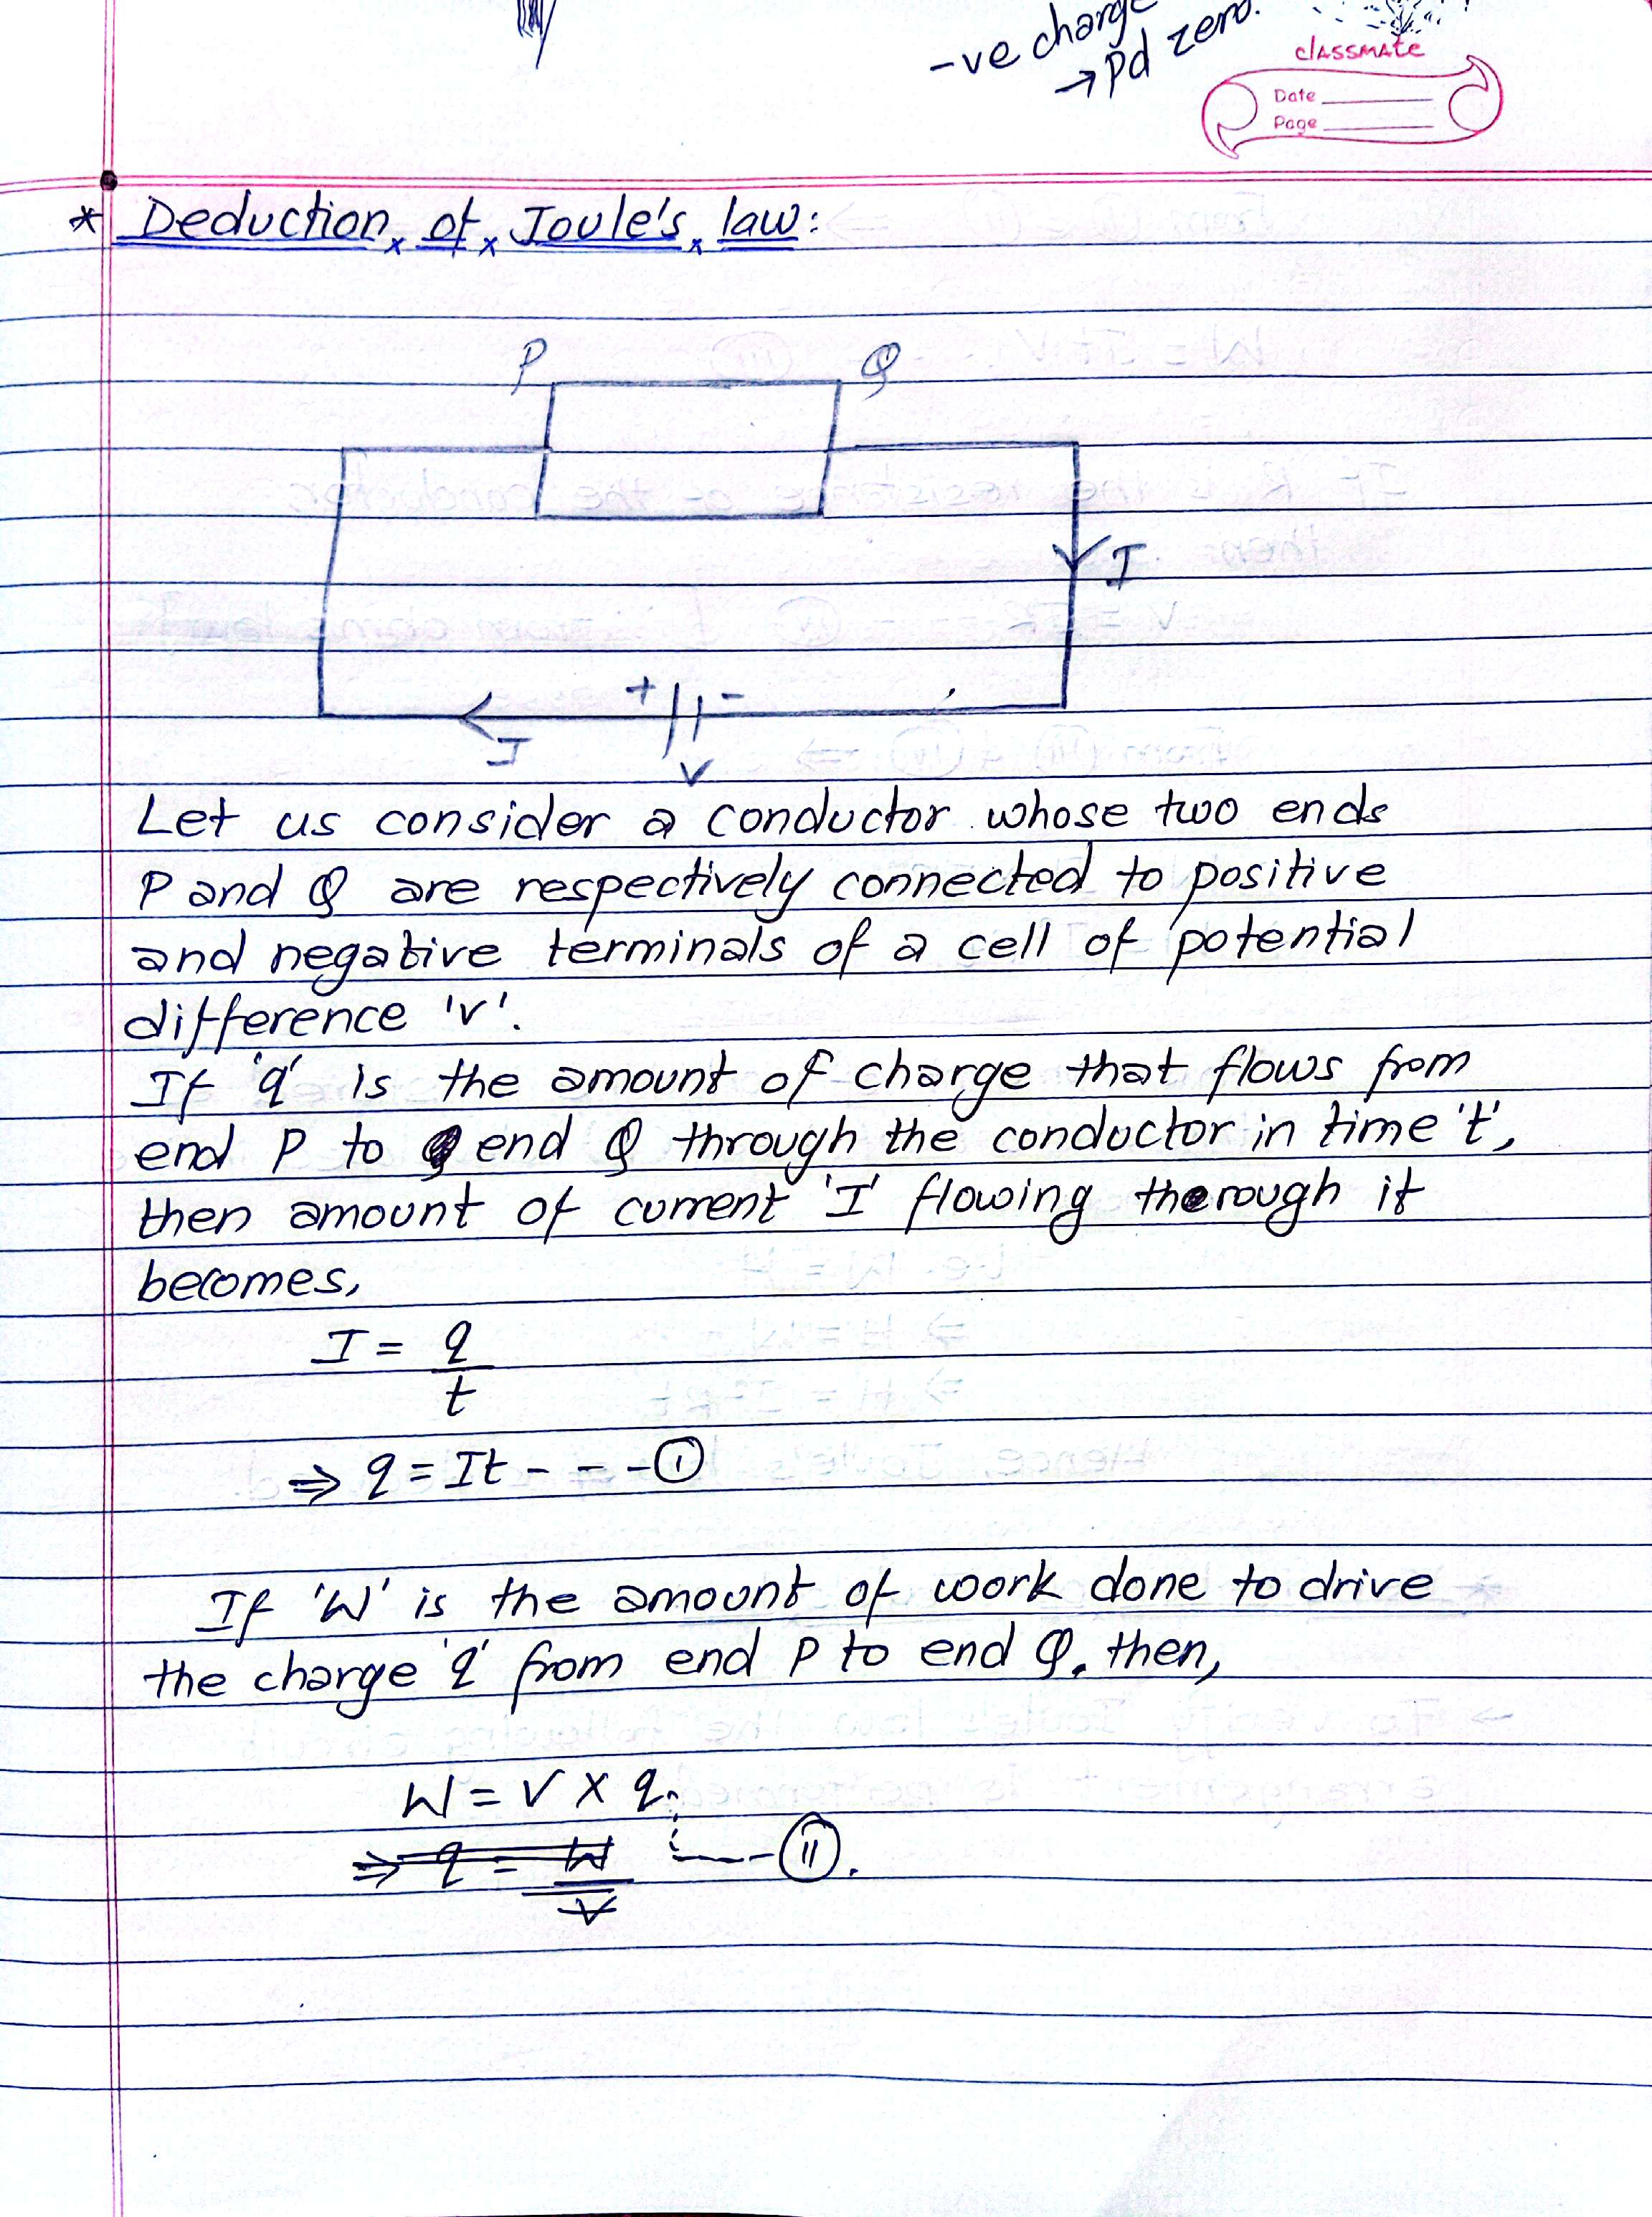 -ve charge
→ Pd zero.
classmate
Date
Page
* Deduction of Joule's law:
P Q
I
+ -
I
V
Let us consider a conductor whose two ends
P and Q are respectively connected to positive
and negative terminals of a cell of potential
difference 'v'.
If 'q' is the amount of charge that flows from
end P to end Q through the conductor in time 't',
then amount of current 'I' flowing therough it
becomes,
I = q
t
⇒ q = It - - - (i)
If 'W' is the amount of work done to drive
the charge 'q' from end P to end Q. then,
W = V × q
⇒ q = W ---- (ii).
V